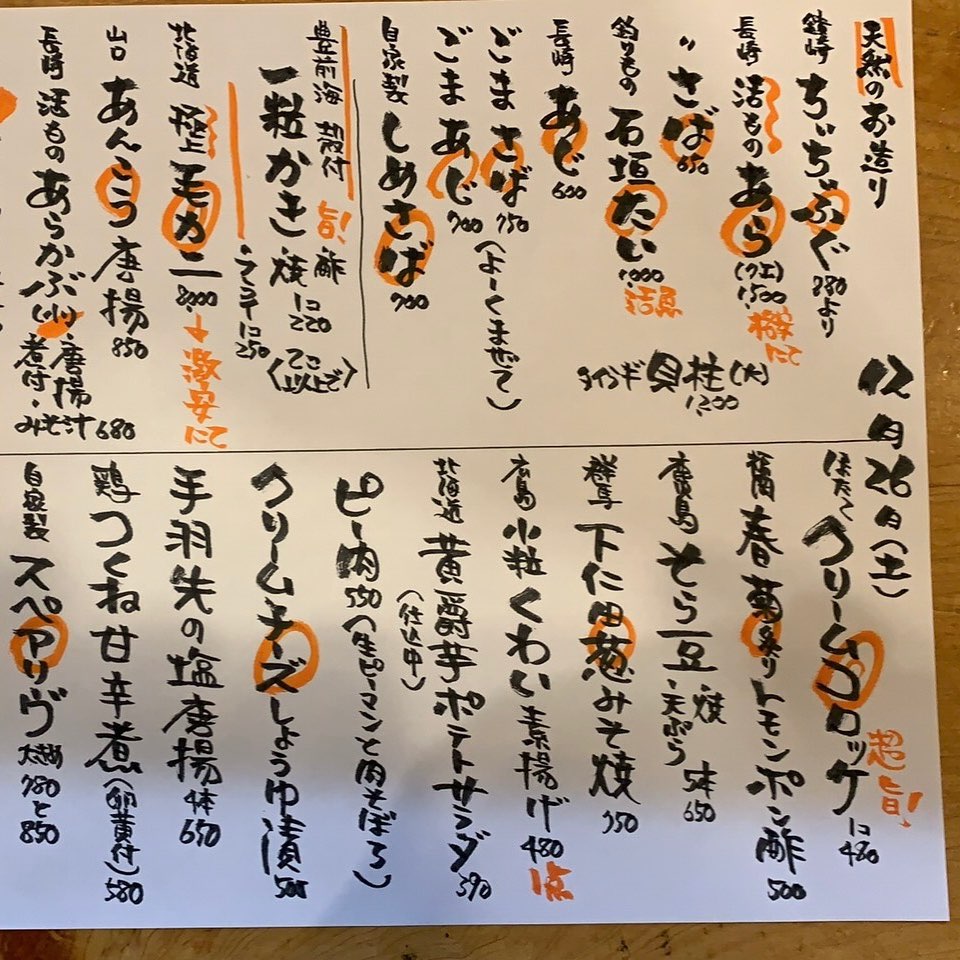 12月26日(土)
天然のお造り
鐘崎 ちぃちぶぐ 880より
長崎 活ものあら(クエ) 1500
にて
〃さば 650
釣りもの 石垣たい 1,000
活〆
タイラギ 貝柱(大) 1,200
長崎 あじ 600
ごまさば 750
ごまあじ 700
(よーくまぜて)
自家製 しめさば 700
豊前海 殻付 旨!
一粒かき 酢・焼 1コ 220
(2コ以上で)
・フライ 1コ 250
北海道 極上 毛カニ 8000
→激安にて
山口 あんこう唐揚 850
長崎 活ものあらかぶ(小) 唐揚・煮付・みそ汁 680
ほたてクリームコロッケ 1コ 480
超旨!
福岡 春菊炙りトモンポン酢 500
鹿児島 そら豆 焼・天ぷら 5本 650
群馬 下仁田葱みそ焼 750
広島 小粒くわい素揚げ 480
北海道 黄爵芋ポテトサラダ 590
(仕込中)
ピー肉 550 (生ピーマンと肉そぼろ)
クリームチーズしょうゆ漬 500
手羽先の塩唐揚 4本 650
鶏つくね甘辛煮(卵黄付) 580
自家製 スペアリヴ 780と850